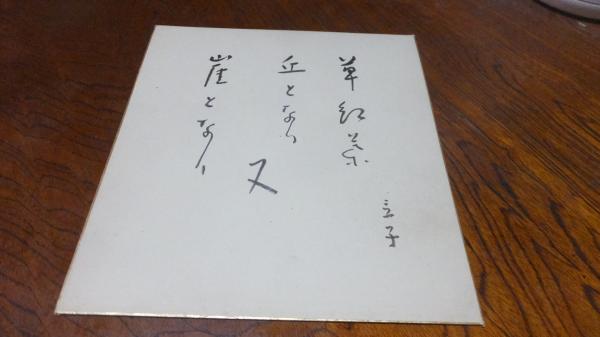 草紅葉
丘となり
又
崖となり
立子